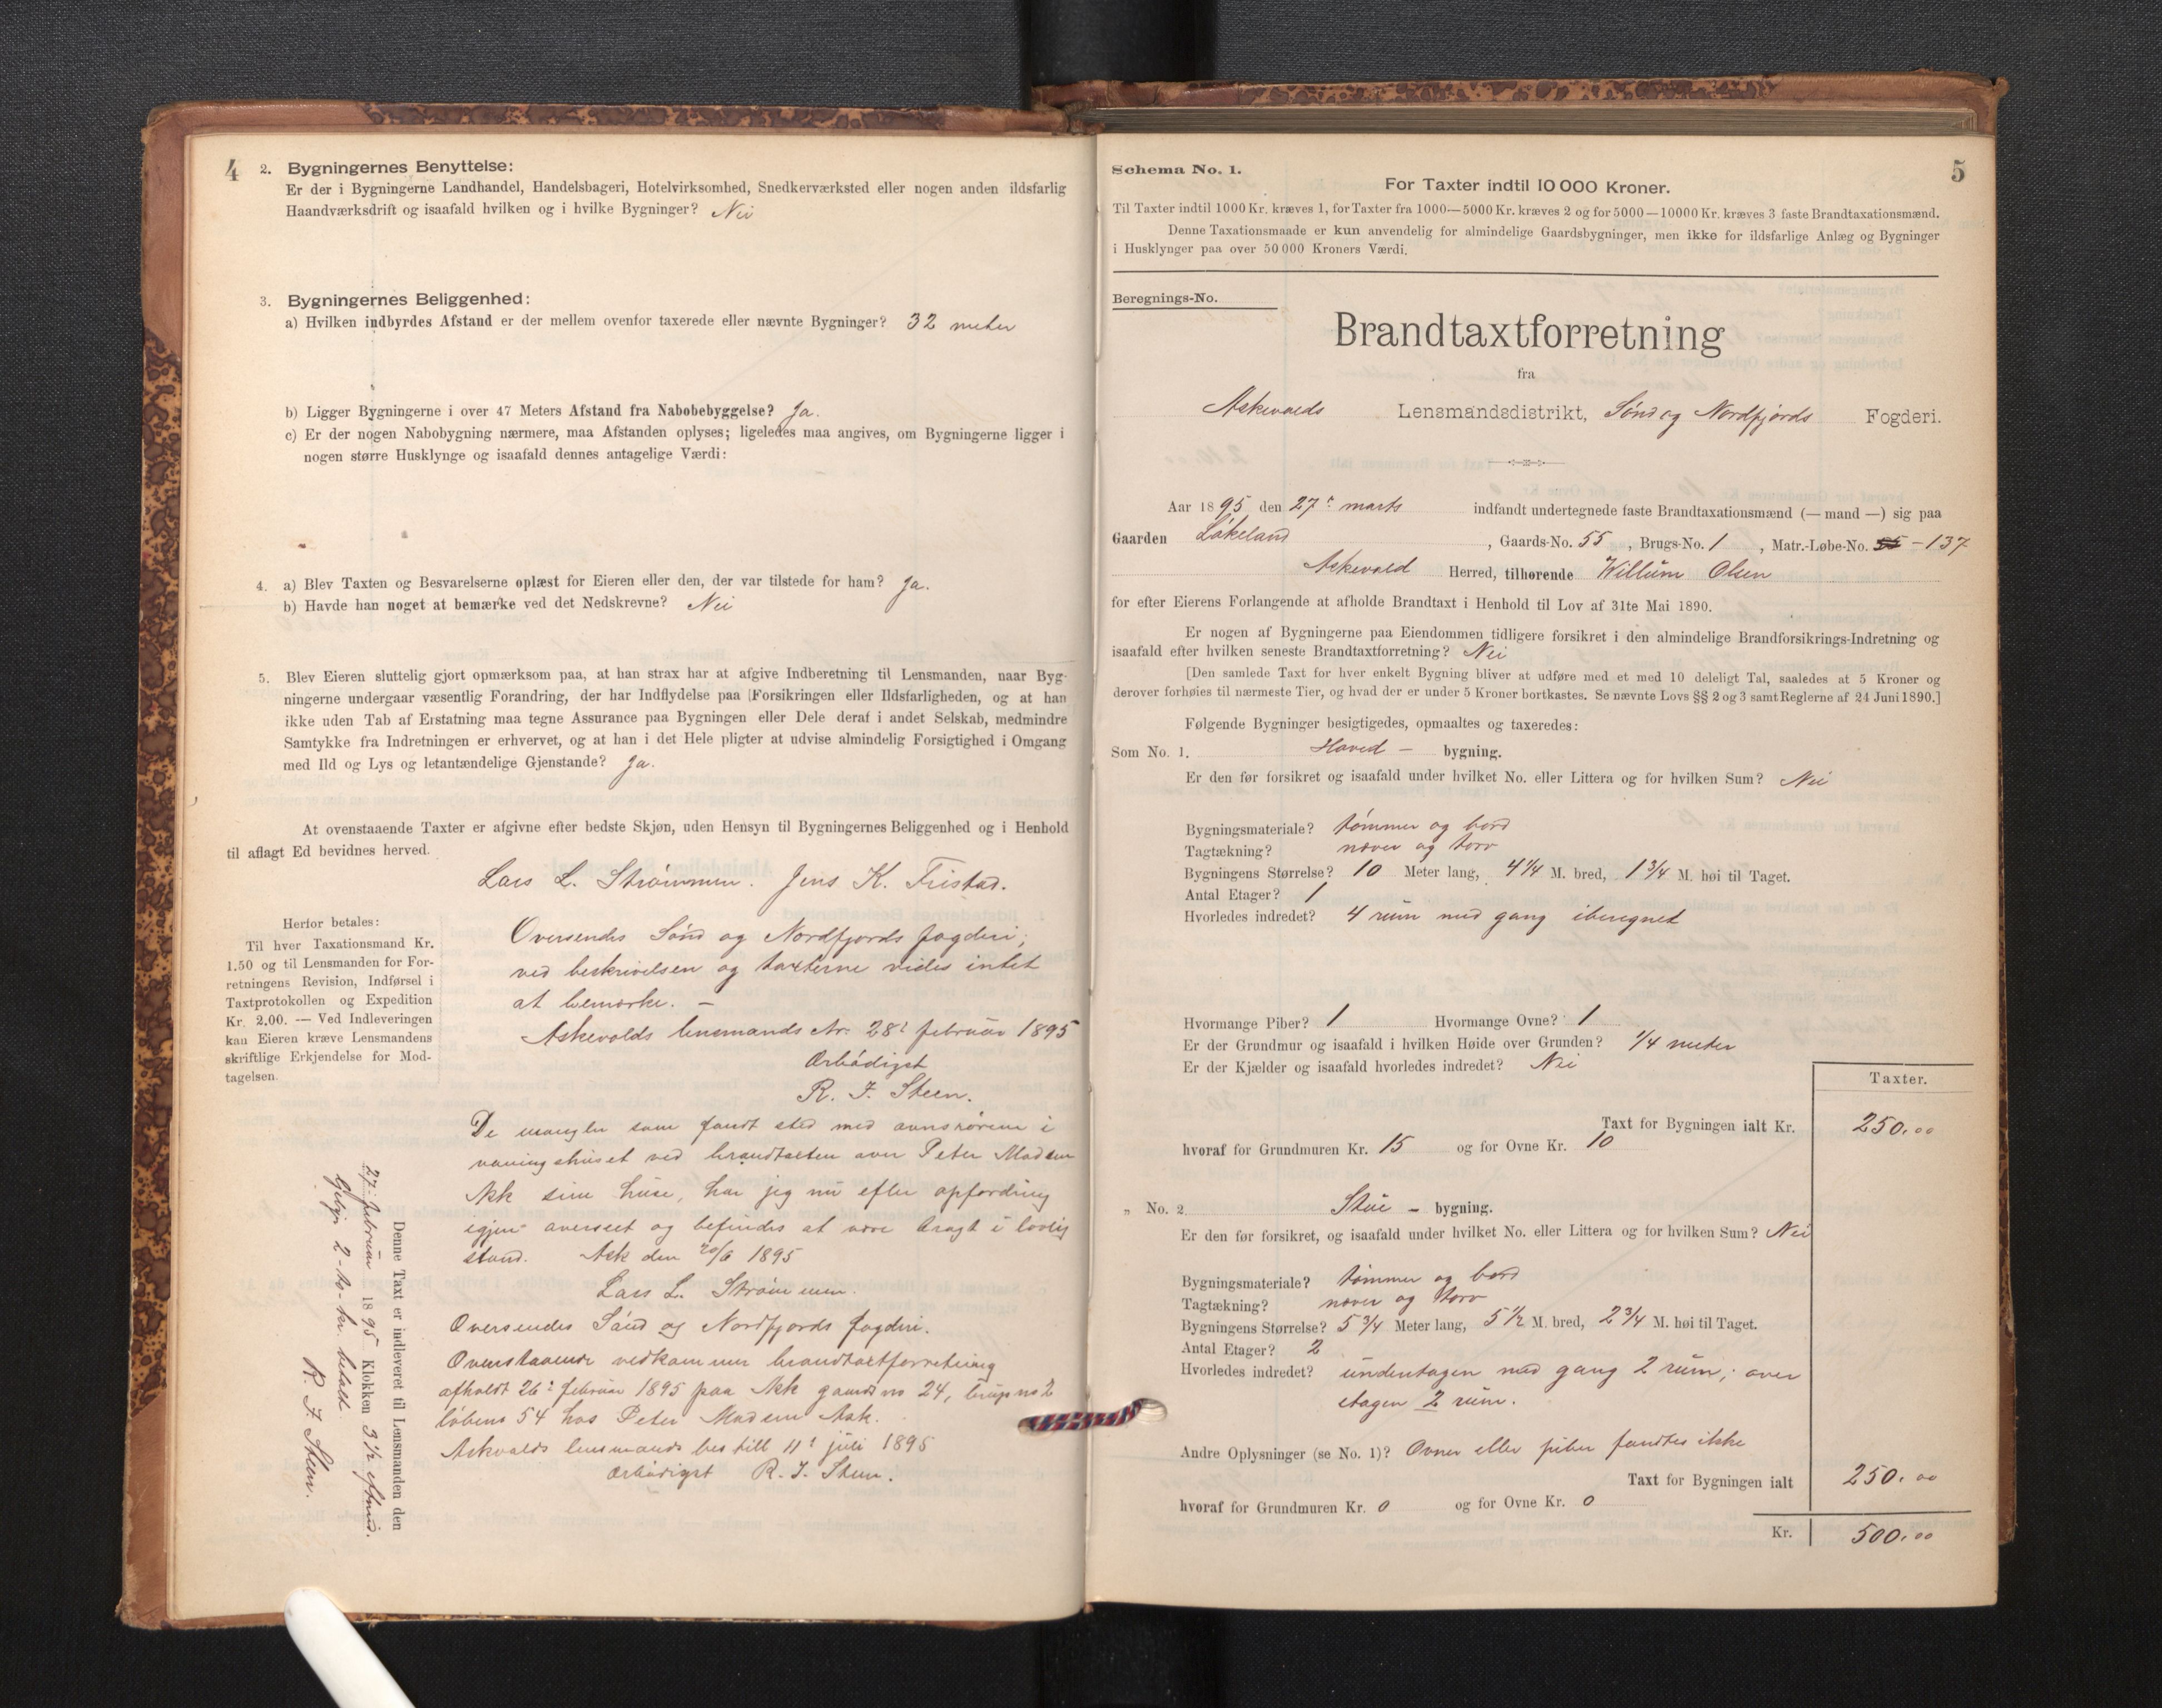 4
2. Bygningernes Benyttelse:
Er der i Bygningerne Landhandel, Handelsbageri, Hotelvirksomhed, Snedkerværksted eller nogen anden ildsfarlig
Haandværksdrift og isaafald hvilken og i hvilke Bygninger? Nei
3. Bygningernes Beliggenhed:
a) Hvilken indbyrdes Afstand er der mellem ovenfor taxerede eller nævnte Bygninger? 32 meter
b) Ligger Bygningerne i over 47 Meters Afstand fra Nabobebyggelse? Ja.
c) Er der nogen Nabobygning nærmere, maa Afstanden oplyses; ligeledes maa angives, om Bygningerne ligger i
nogen større Husklynge og isaafald dennes antagelige Værdi:
4. a) Blev Taxten og Besvarelserne oplæst for Eieren eller den, der var tilstede for ham? Ja.
b) Havde han noget at bemærke ved det Nedskrevne? Nei
5. Blev Eieren sluttelig gjort opmærksom paa, at han strax har at afgive Indberetning til Lensmanden, naar Byg-
ningerne undergaar væsentlig Forandring, der har Indflydelse paa Forsikringen eller Ildsfarligheden, og at han
ikke uden Tab af Erstatning maa tegne Assurance paa Bygningen eller Dele deraf i andet Selskab, medmindre
Samtykke fra Indretningen er erhvervet, og at han i det Hele pligter at udvise almindelig Forsigtighed i Omgang
med Ild og Lys og letantændelige Gjenstande? Ja.
At ovenstaaende Taxter er afgivne efter bedste Skjøn, uden Hensyn til Bygningernes Beliggenhed og i Henhold
til aflagt Ed bevidnes herved.
Lars L. Strømmen. Jens K. Tristad.
Herfor betales:
Til hver Taxationsmand Kr.
1.50 og til Lensmanden for For-
retningens Revision, Indførsel i
Taxtprotokollen og Expedition
Kr. 2.00. — Ved Indleveringen
kan Eieren kræve Lensmandens
skriftlige Erkjendelse for Mod-
tagelsen.
Oversendes Sønd og Nordfjords fogderi;
ved beskrivelsen og taxterne vides intet
at bemærke. –
Askevolds lensmands 28: februar 1895
Ærbødigst
R. J. Steen.
De mangler som fandt sted med ovnsrørene i
vaaningshuset ved brandtaxten over Peter Madsen
Ask sine huse, har jeg nu efter opfordring
igjen overseet og befindes at være bragt i lovlig
stand. Ask den 20/6 1895
Lars L. Strømmen.
Oversendes Sønd og Nordfjords fogderi.
Ovenstaaende vedkommer brandtaxtforretning
afholdt 26: februar 1895 paa Ask gaards no 24, brugs no 2
løbeno 54 hos Peter Madsen Ask.
Askvolds lensmands bestill 11: juli 1895
Ærbødigst R. J. Steen.
Denne Taxt er indleveret til Lensmanden den
27: februar 1895 Klokken 3 1/2 eftmid.
Gebyr 2 - to - kr betalt.
R. J. Steen.
5
Schema No. 1.
For Taxter indtil 10 000 Kroner.
Til Taxter indtil 1000 Kr. kræves 1, for Taxter fra 1000—5000 Kr. kræves 2 og for 5000—10000 Kr. kræves 3 faste Brandtaxationsmænd.
Denne Taxationsmaade er kun anvendelig for almindelige Gaardsbygninger, men ikke for ildsfarlige Anlæg og Bygninger
i Husklynger paa over 50 000 Kroners Værdi.
Beregnings-No.
Brandtaxtforretning
fra
Askevolds Lensmandsdistrikt, Sønd og Nordfjords Fogderi.
Aar 1895 den 27: marts indfandt undertegnede faste Brandtaxationsmænd (— mand —) sig paa
Gaarden Løkeland, Gaards-No. 55, Brugs-No. 1, Matr.-Løbe-No. 55 - 137
Askevold Herred, tilhørende Willum Olsen
for efter Eierens Forlangende at afholde Brandtaxt i Henhold til Lov af 31te Mai 1890.
Er nogen af Bygningerne paa Eiendommen tidligere forsikret i den almindelige Brandforsikrings-Indretning og
isaafald efter hvilken seneste Brandtaxtforretning? Nei
[Den samlede Taxt for hver enkelt Bygning bliver at udføre med et med 10 deleligt Tal, saaledes at 5 Kroner og
derover forhøies til nærmeste Tier, og hvad der er under 5 Kroner bortkastes. Se nævnte Lovs §§ 2 og 3 samt Reglerne af 24 Juni 1890.]
Følgende Bygninger besigtigedes, opmaaltes og taxeredes:
Som No. 1. Hoved – bygning.
Er den før forsikret og isaafald under hvilket No. eller Littera og for hvilken Sum? Nei
Bygningsmateriale? tømmer og bord
Tagtækning? næver og torv
Bygningens Størrelse? 10 Meter lang, 4 1/4 M. bred, 1 3/4 M. høi til Taget.
Antal Etager? 1
Hvorledes indredet? 4 rum med gang iberegnet
Hvormange Piber? 1 Hvormange Ovne? 1
Er der Grundmur og isaafald i hvilken Høide over Grunden? 1/4 meter
Er der Kjælder og isaafald hvorledes indredet? Nei
Taxter.
Taxt for Bygningen ialt Kr. 250.00
hvoraf for Grundmuren Kr. 15 og for Ovne Kr. 10
„ No. 2 Stue – bygning.
Er den før forsikret, og isaafald under hvilket No. eller Littera og for hvilken Sum? Nei
Bygningsmateriale? tømmer og bord
Tagtækning? næver og torv
Bygningens Størrelse? 5 3/4 Meter lang, 5 1/2 M. bred, 2 3/4 M. høi til Taget.
Antal Etager? 2
Hvorledes indredet? underetagen med gang 2 rum; over
etagen 2 rum.
Andre Oplysninger (se No. 1)? Ovner eller piber fandtes ikke
Taxt for Bygningen ialt 250.00
hvoraf for Grundmuren Kr. 0 og for Ovne Kr. 0
Kr. 500.00